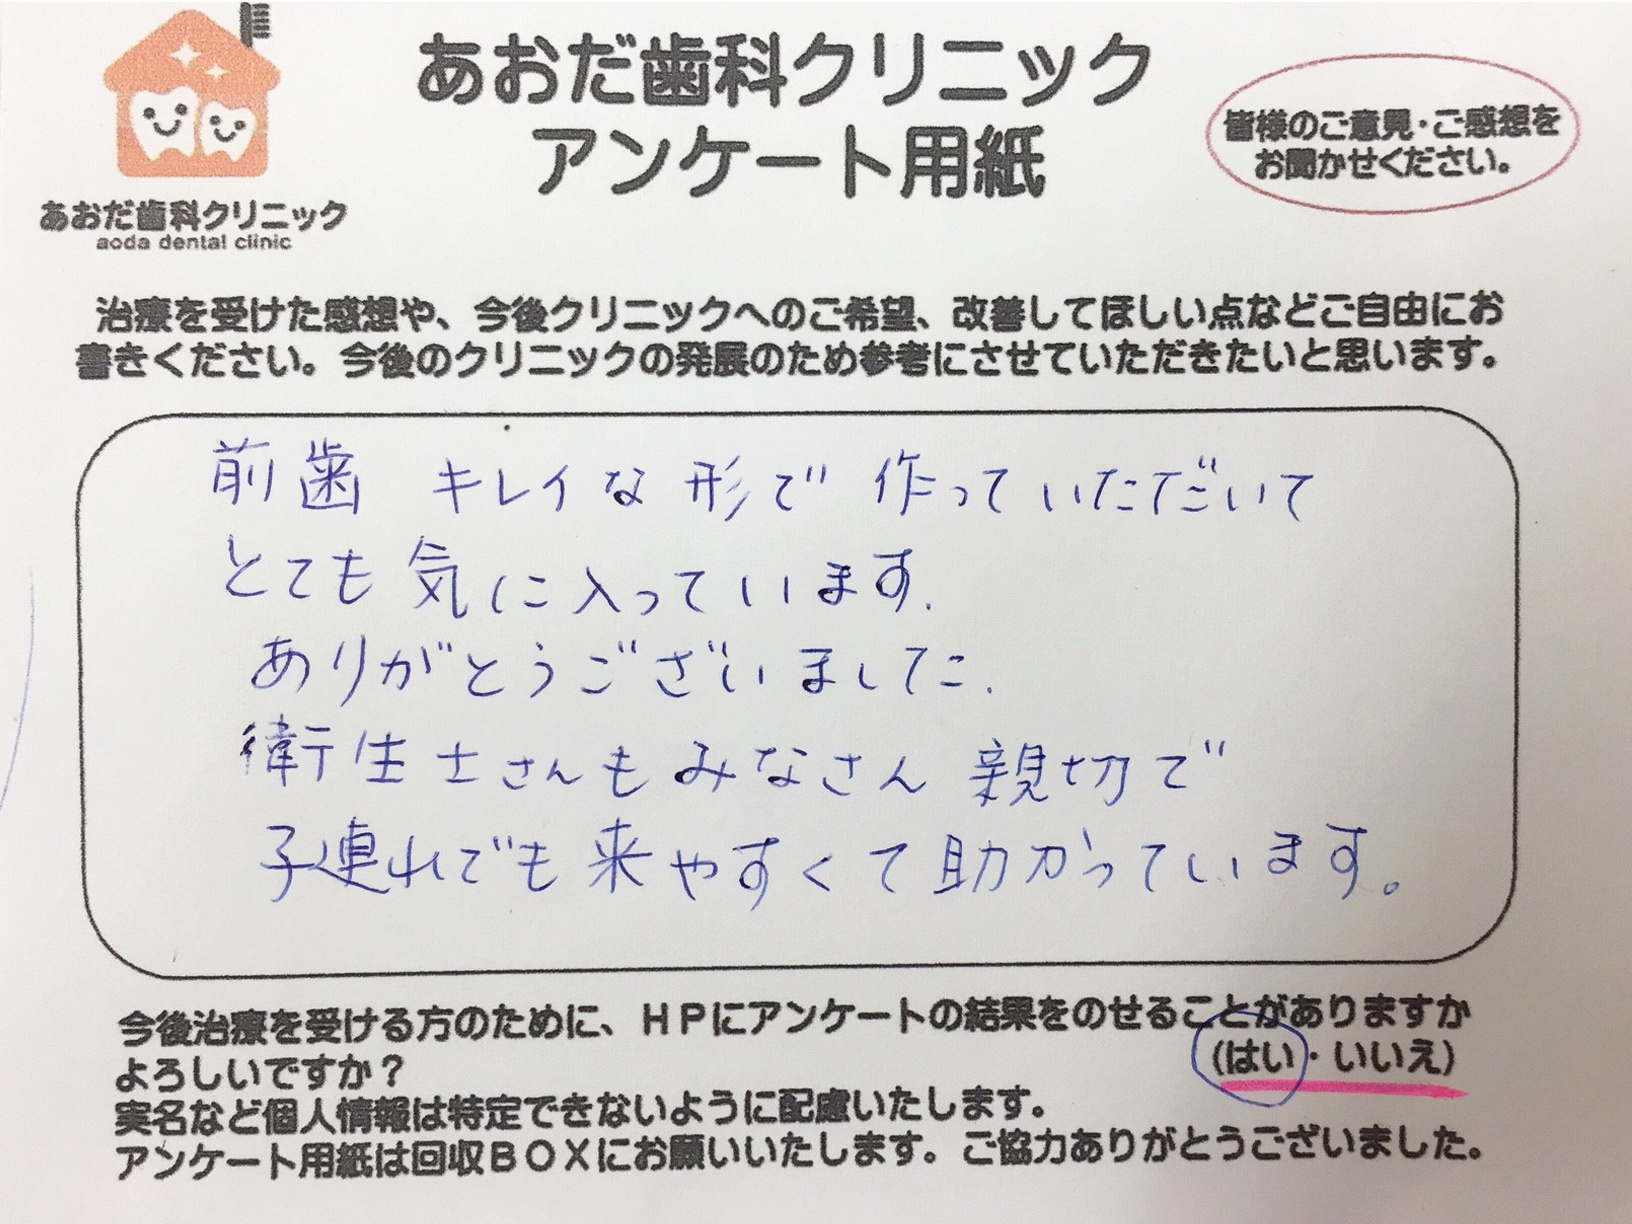 あおだ歯科クリニック
アンケート用紙
皆様のご意見・ご感想を
お聞かせください。
あおだ歯科クリニック
aoda dental clinic
治療を受けた感想や、今後クリニックへのご希望、改善してほしい点などご自由にお
書きください。今後のクリニックの発展のため参考にさせていただきたいと思います。
前歯 キレイな形で 作っていただいて
とても気に入っています.
ありがとうございました.
衛生士さんもみなさん 親切で
子連れでも来やすくて助かっています。
今後治療を受ける方のために、HPにアンケートの結果をのせることがありますが
よろしいですか?
(はい・いいえ)
実名など個人情報は特定できないように配慮いたします。
アンケート用紙は回収BOXにお願いいたします。ご協力ありがとうございました。